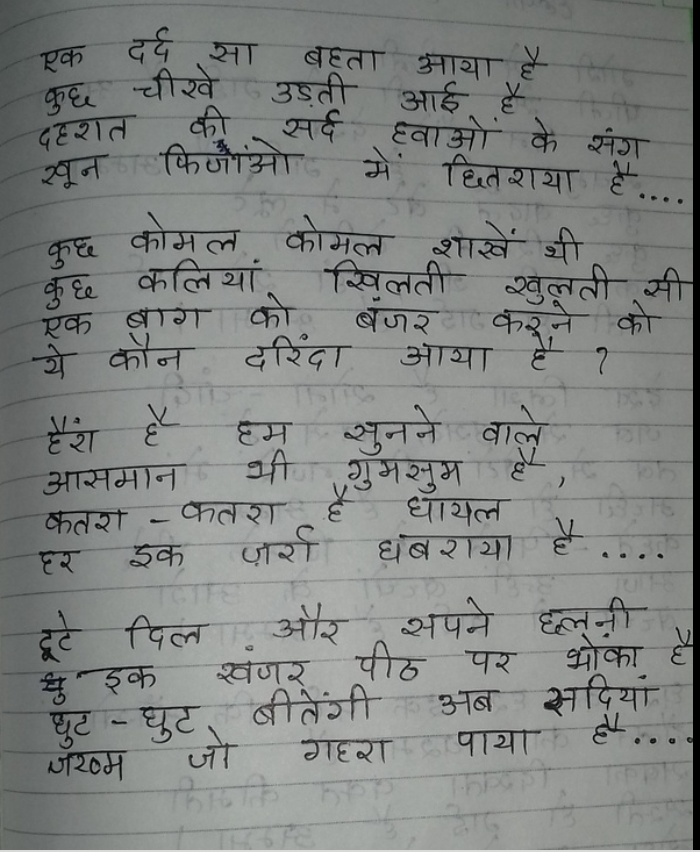 एक दर्द सा बहता आया है
कुछ चीखे उड़ती आई है
दहशत की सर्द हवाओं के संग
खून फिजांओ में छितराया है....
कुछ कोमल कोमल शाखें थी
कुछ कलियां खिलती खुलती सी
एक बाग को बंजर करने को
ये कौन दरिंदा आया है ?
हैरां है हम सुनने वाले
आसमान भी गुमसुम है,
कतरा - कतरा है घायल
हर इक ज़र्रा घबराया है ....
टूटे दिल और सपने छलनी
इक खंजर पीठ पर भोंका है
घुट - घुट बीतेंगी अब सदियां
जख्म जो गहरा पाया है....